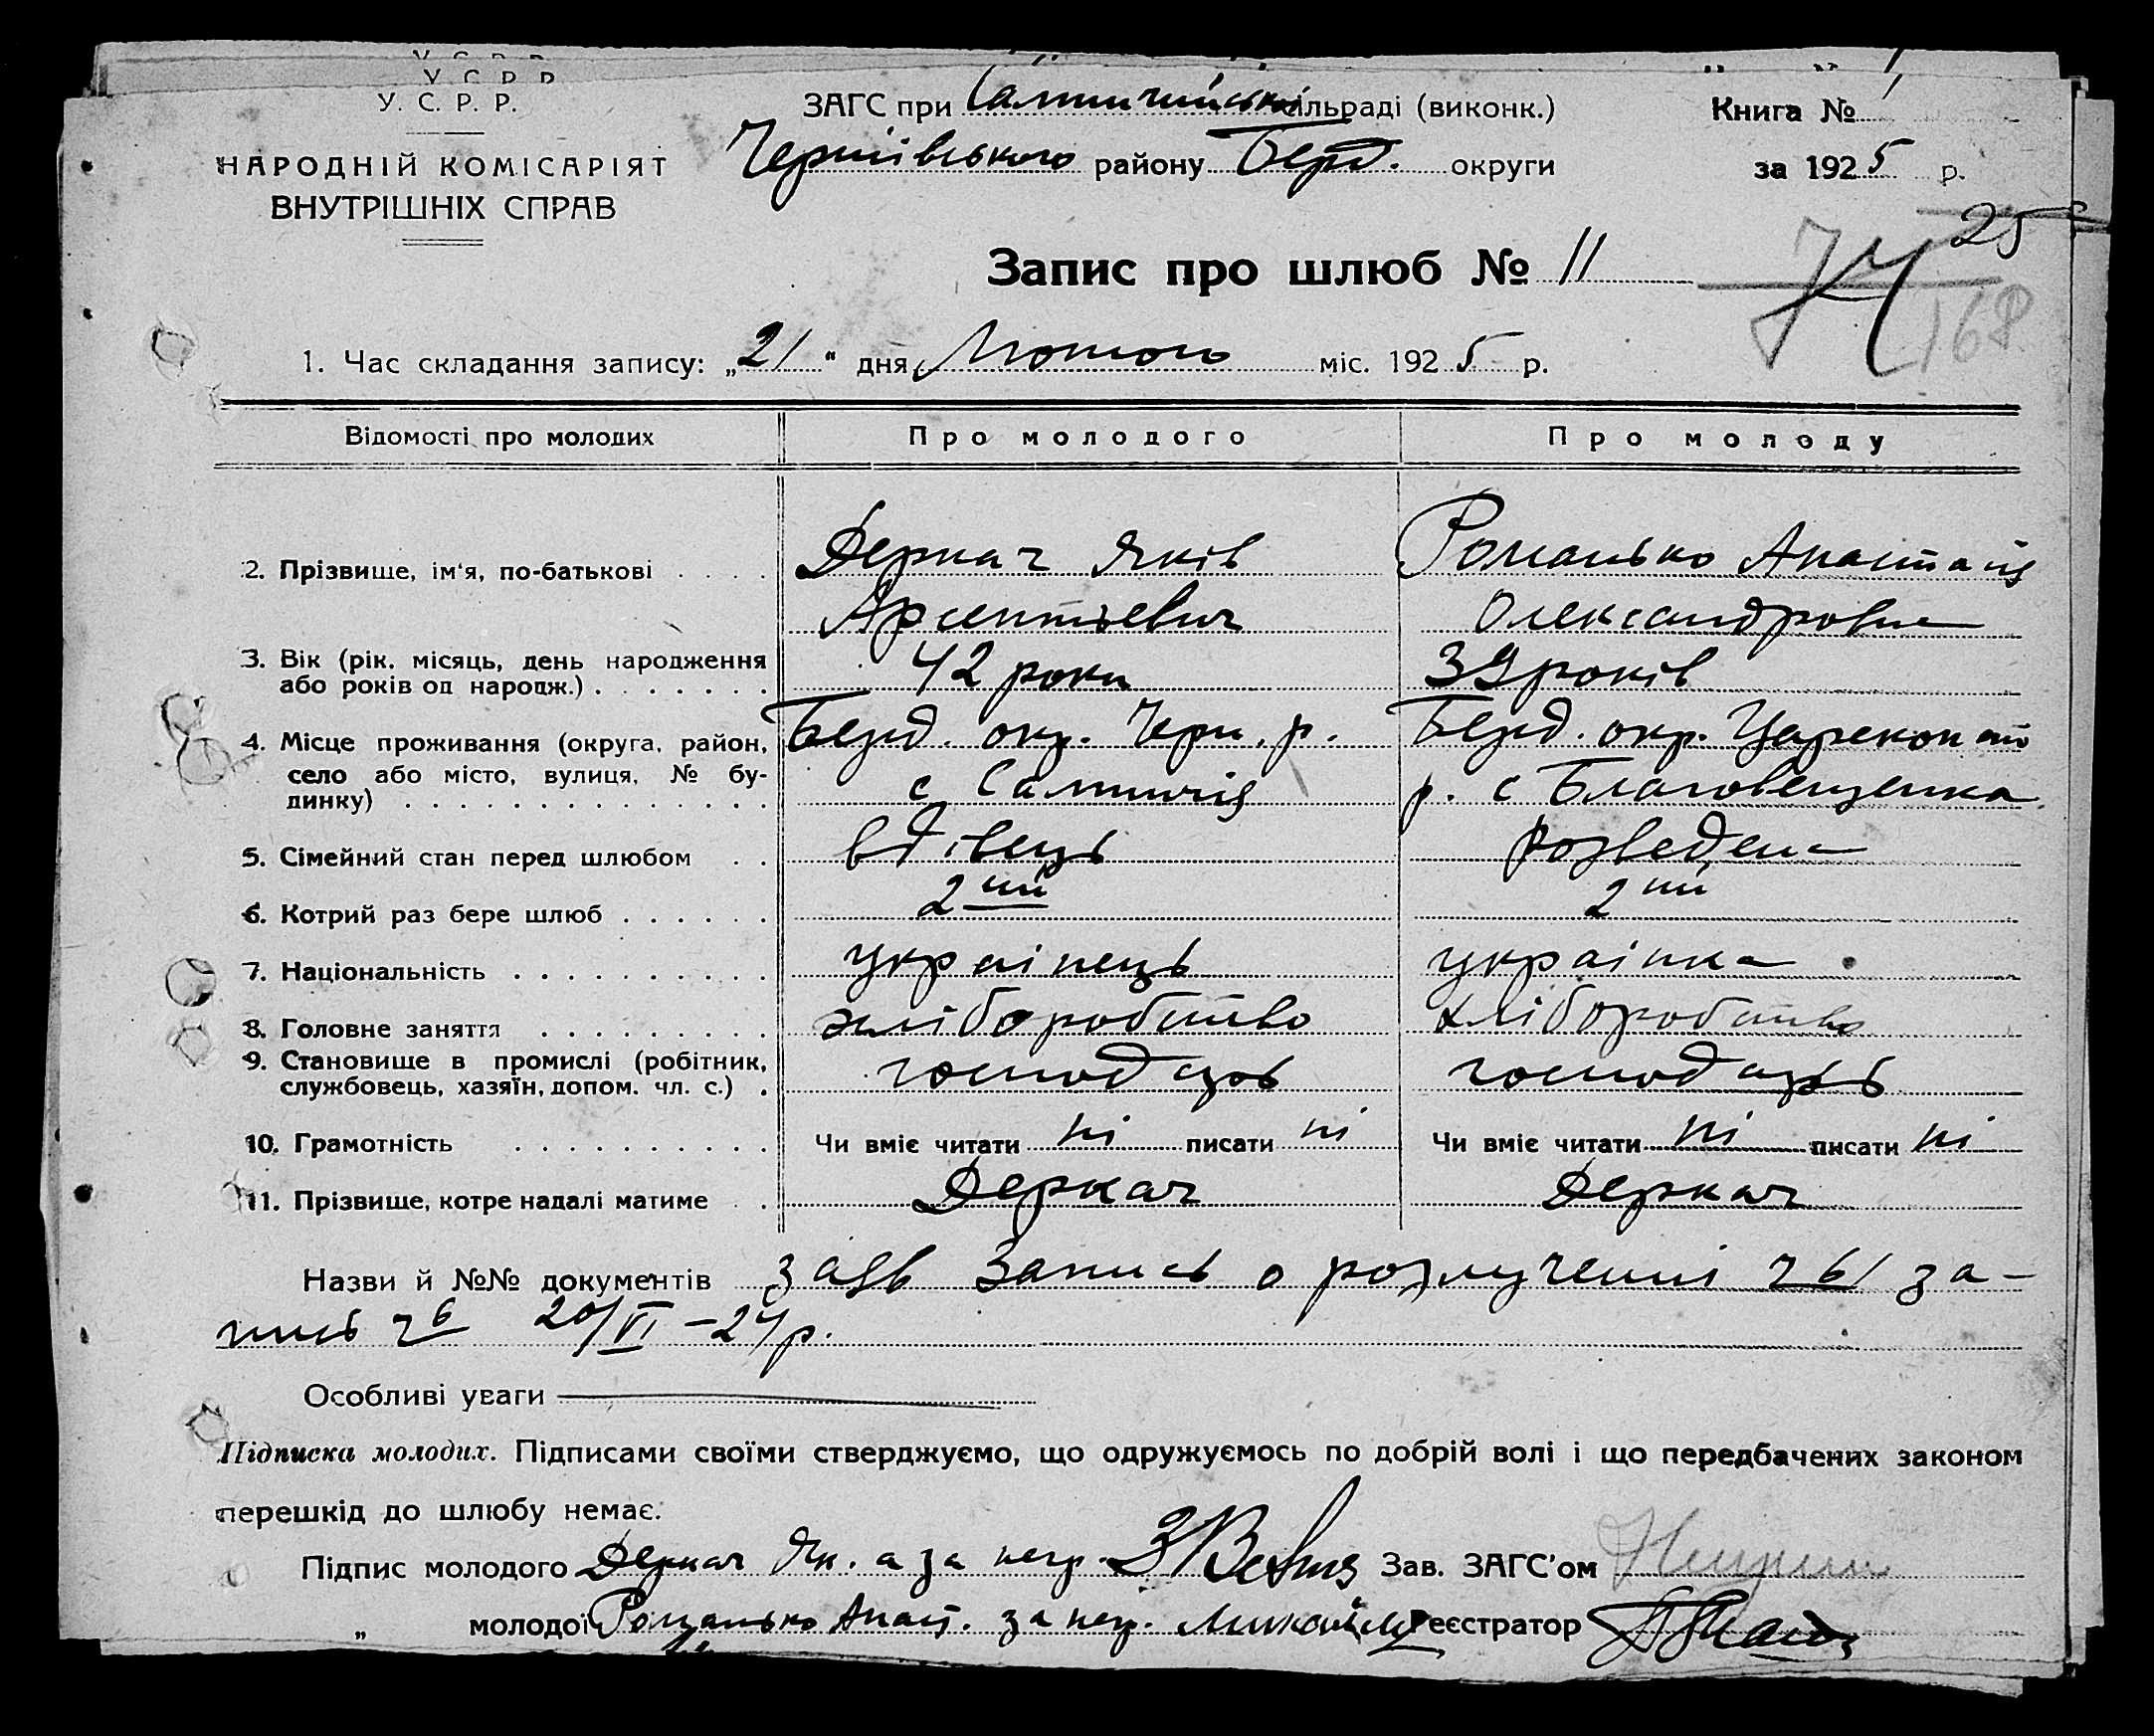 У. С. Р. Р.
НАРОДНІЙ КОМІСАРІЯТ
ВНУТРІШНІХ СПРАВ
ЗАГС при Салтичийській сільраді (виконк.)
Чернівського району Берд. округи
Книга № 1
за 1925 р.
25
74
168
Запис про шлюб № 11
1. Час складання запису: „21“ дня Лютого міс. 1925 р.
Відомості про молодих Про молодого Про молоду
2. Прізвище, ім'я, по-батькові . . . . Деркач Яків Романько Анастасія
Арсентьевич Олександровна
3. Вік (рік. місяць, день народження або років од народж.) . . . . . . . 42 роки 39 років
4. Місце проживання (округа, район, Берд. окр. Черн. р. Берд. окр. Царекон
село або місто, вулиця, № будинку) . . . . . . . . . . . . . . с Салтичія р. с Благовещенка
5. Сімейний стан перед шлюбом . . вдівець розведена
6. Котрий раз бере шлюб . . . . . . 2ий 2ий
7. Національність . . . . . . . . . . українець українка
8. Головне заняття . . . . . . . . . хліборобство хліборобство
9. Становище в промислі (робітник,
службовець, хазяїн, допом. чл. с.) . господарь господарь
10. Грамотність . . . . . . . . . . Чи вміє читати ні писати ні Чи вміє читати ні писати ні
11. Прізвище, котре надалі матиме . . Деркач Деркач
Назви й №№ документів заяв Запись о розлученні ч 61 за-
пись ч 6 20/VI – 24 р.
Особливі уваги
Підписка молодих. Підписами своїми стверджуємо, що одружуємось по добрій волі і що передбачених законом
перешкід до шлюбу немає.
Підпис молодого Деркач Як. а за негр. Зав. ЗАГС'ом
„ молодої Романько Анаст. за негр. Реєстратор